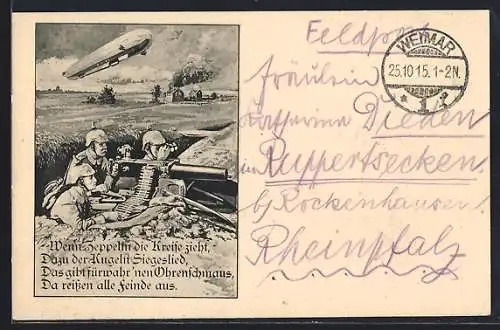 Feldpost
WEIMAR
25.10.15.1-2N.
Fräulein
Katharina Dieden
in Ruppertsecken
b/ Rockenhausen
Rheinpfalz
Wenn Zeppelin die Kreise zieht,
Dazu der Kugeln Siegeslied,
Das gibt fürwahr 'nen Ohrenschmaus,
Da reißen alle Feinde aus.